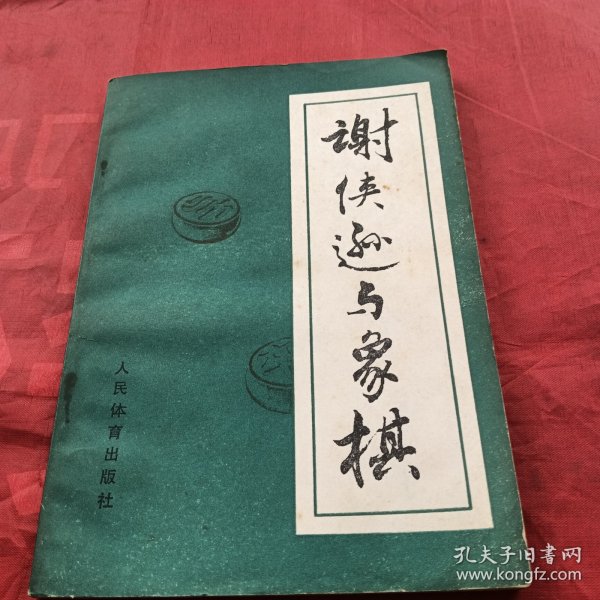 谢侠逊与象棋
人民体育出版社
孔夫子旧书网
www.kongfz.com